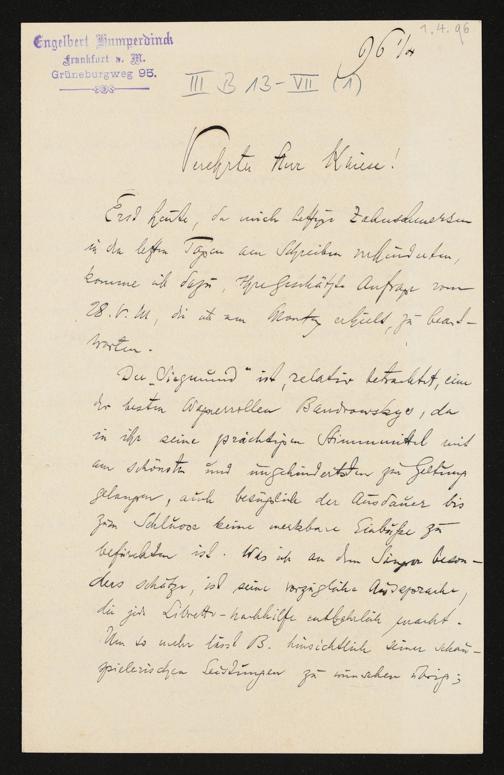 1.4.96
Engelbert Humperdinck
Frankfurt a. M.
Grüneburgweg 95.
96 1/4
III B 13-VII (1)
Verehrter Herr Kniese!
Erst heute, da mich heftige Zahnschmerzen
in den letzten Tagen am Schreiben verhinderten,
komme ich dazu, Ihre geschätzte Anfrage vom
28. v. M., die ich am Montag erhielt, zu beant-
worten.
Der „Siegmund" ist, relativ betrachtet, eine
der besten Wagnerrollen Bandrowskys, da
in ihr seine prächtigen Stimmmittel mit
am schönsten und ungehindertsten zur Geltung
gelangen, auch bezüglich der Ausdauer bis
zum Schlusse keine merkbare Einbuße zu
befürchten ist. Was ich an dem Sänger beson-
ders schätze, ist seine vorzügliche Aussprache,
die jede Libretto-Nachhilfe entbehrlich macht.
Um so mehr lässt B. hinsichtlich seiner schau-
spielerischen Leistungen zu wünschen übrig;